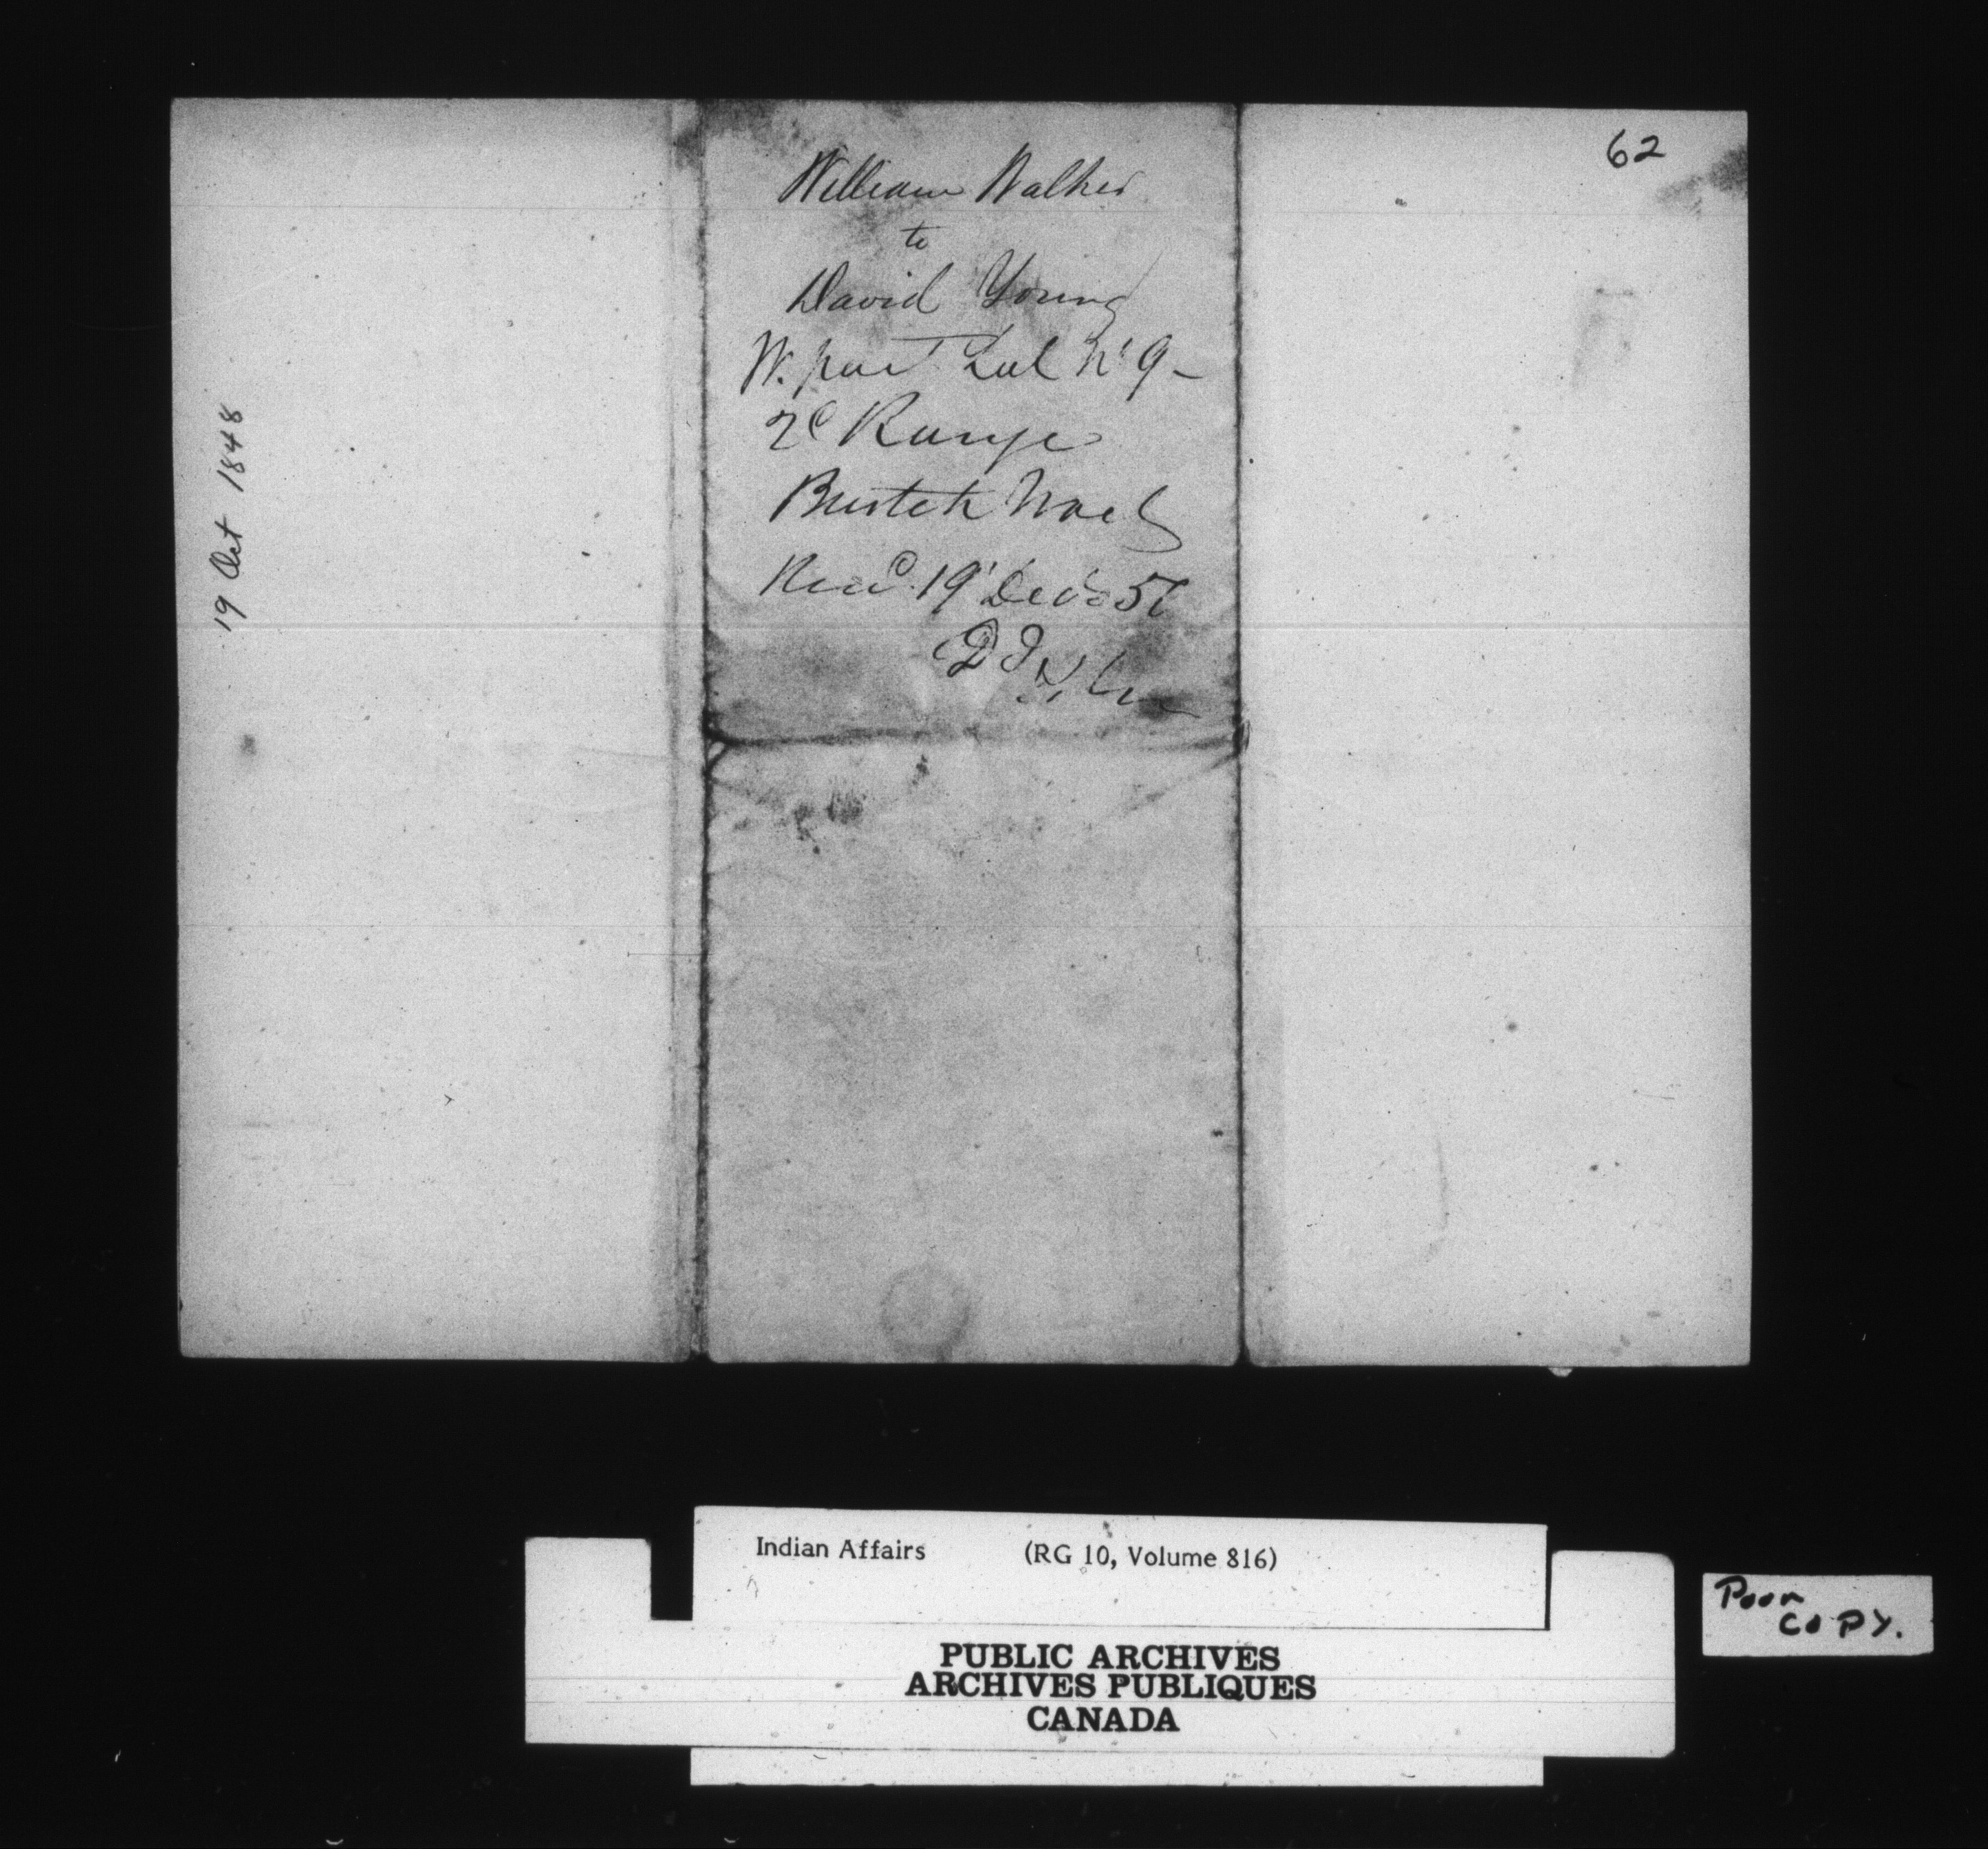 62
19 Oct 1848
William Walker
to
David Young
W. part Lot No 9 -
2d Range
Burtch Tract
Recd 19 Dec
Indian Affairs (RG 10, Volume 816)
PUBLIC ARCHIVES
ARCHIVES PUBLIQUES
CANADA
Poor
COPY.